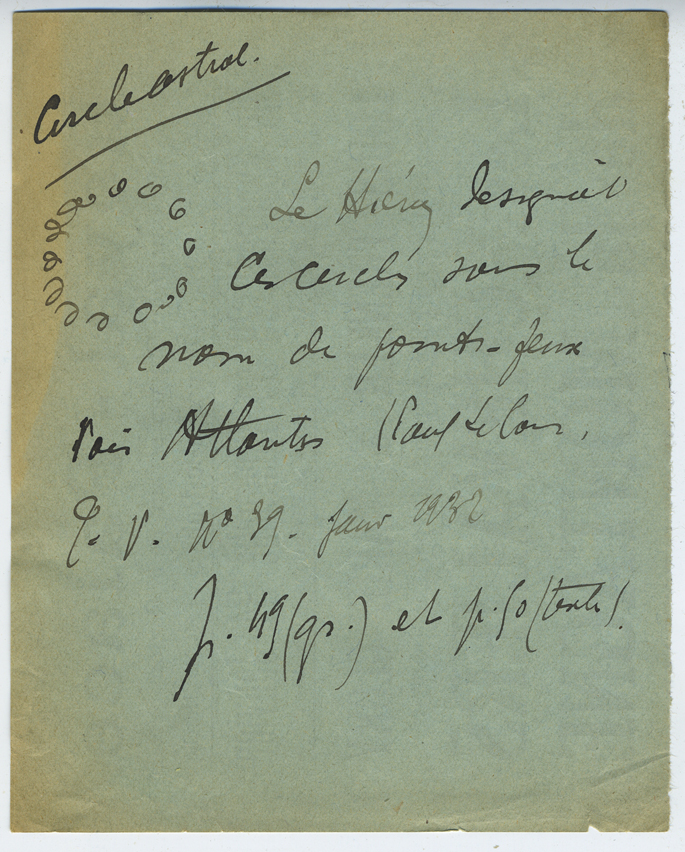 Cercle astral.
Le Hiéro designait
ces cercles sous le
nom de points-feux
Voir Atlantis (Paul Le Cour,
T. V. N° 39. Janv 1932
p. 49 (gr.) et p. 50 (texte).